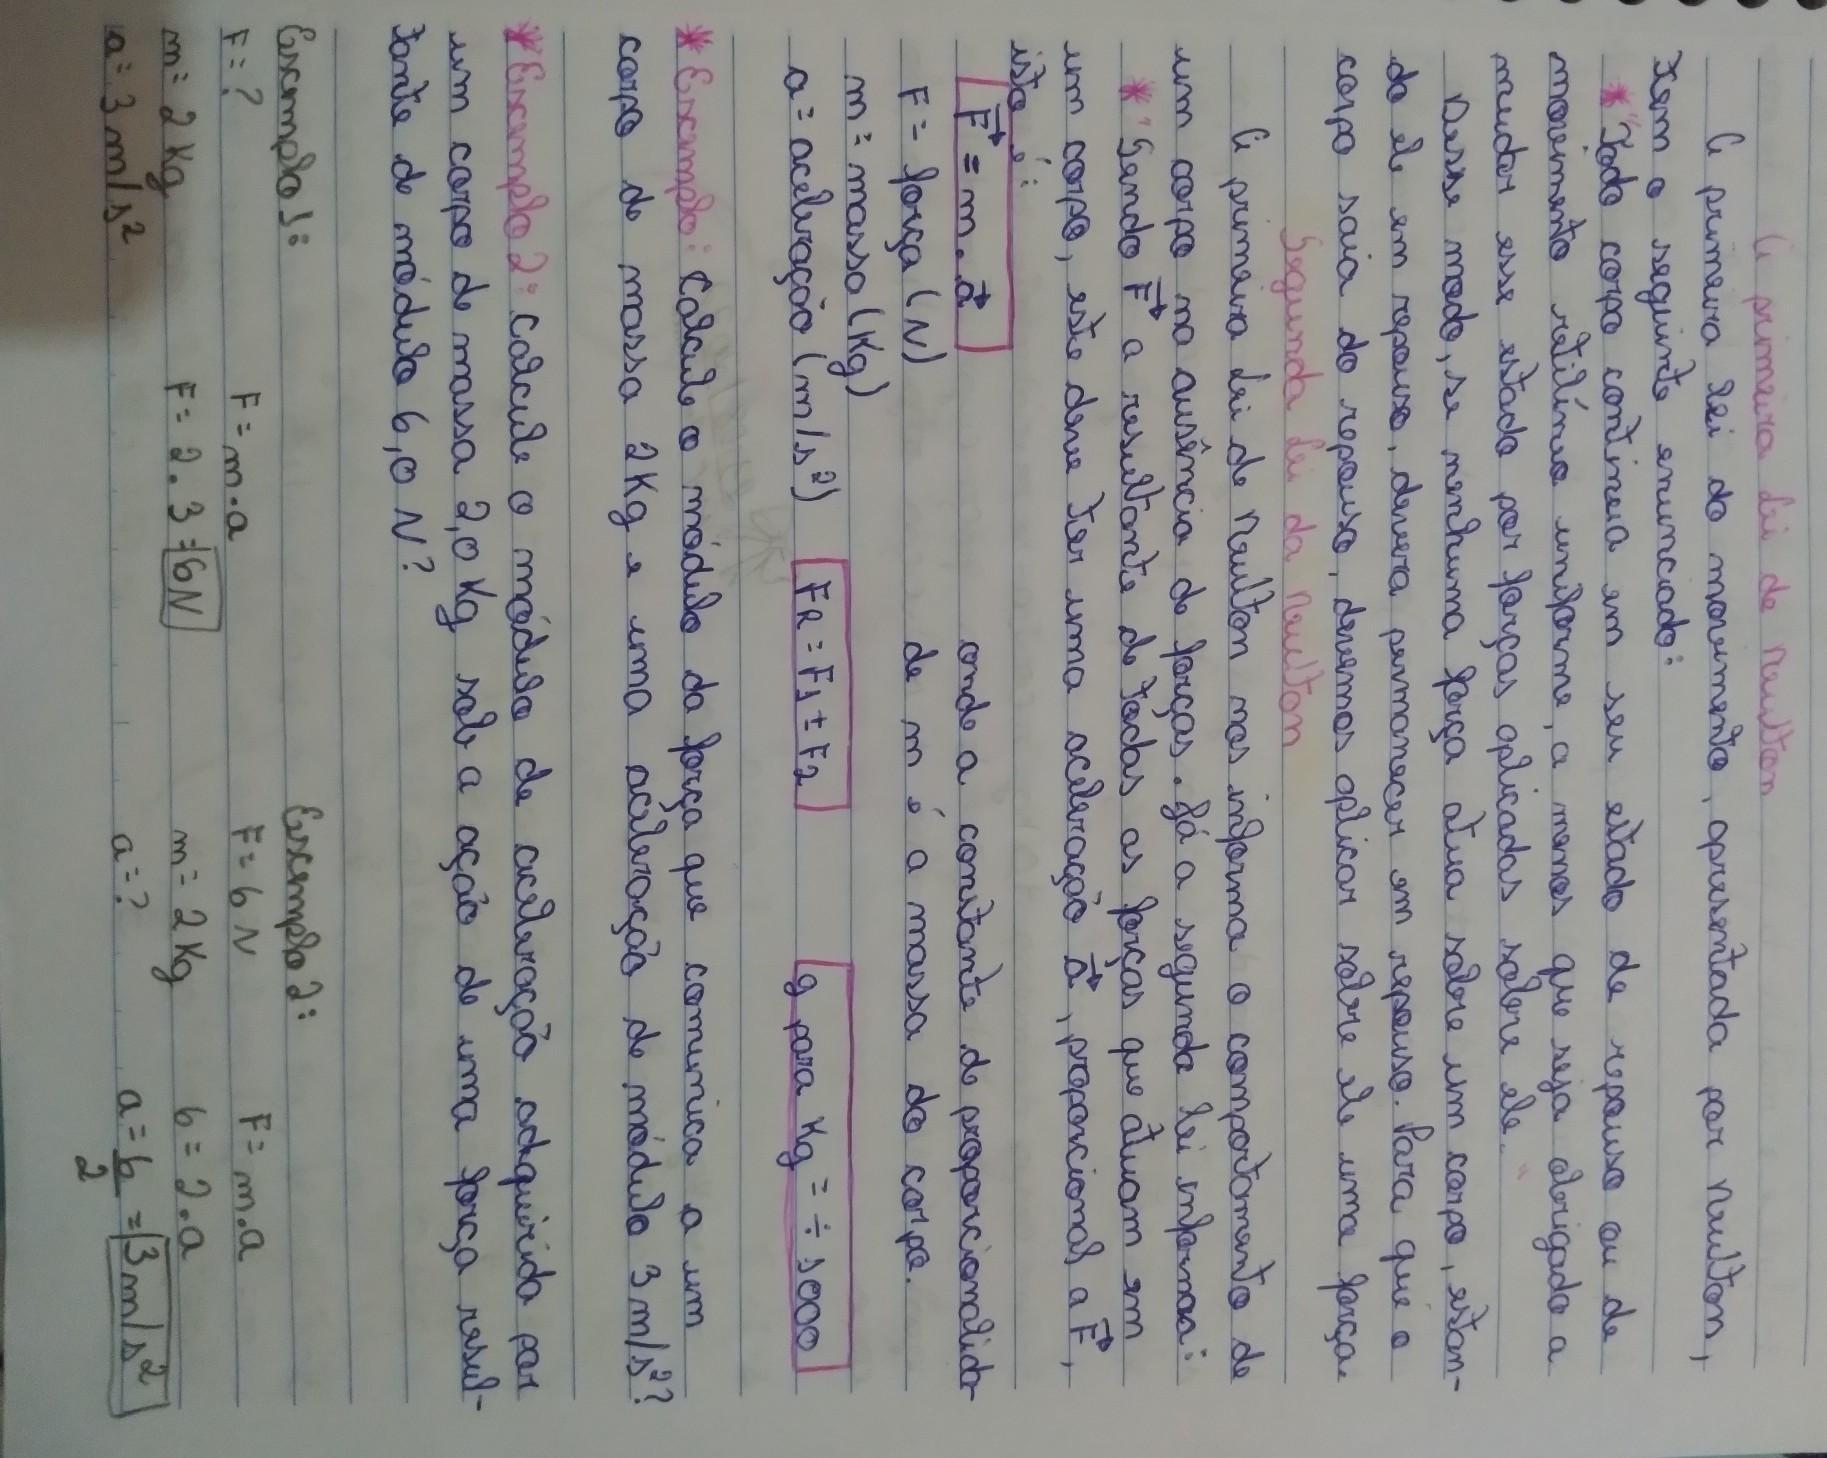 A primeira Lei de Newton
A primeira lei do movimento, apresentada por Newton,
tem o seguinte enunciado:
* "Todo corpo continua em seu estado de repouso ou de
movimento retilíneo uniforme, a menos que seja obrigado a
mudar esse estado por forças aplicadas sobre ele."
Desse modo, se nenhuma força atua sobre um corpo, estan-
do ele em repouso, devera permanecer em repouso. Para que o
corpo saia do repouso, devemos aplicar sobre ele uma força.
Segunda Lei da Newton
A primeira Lei de Newton nos informa o comportamento de
um corpo na ausência de forças. Já a segunda lei informa:
* "Sendo F⃗ a resultante de todas as forças que atuam em
um corpo, este deve ter uma aceleração a⃗, proporcional a F⃗,
isto é:
F⃗ = m . a⃗
onde a constante de proporcionalida-
F = força (N)
de m é a massa do corpo.
m = massa (Kg)
a = aceleração (m/s²)
FR = F1 ± F2
g para Kg = ÷ 1000
* Exemplo: Calcule o módulo da força que comunica a um
corpo de massa 2Kg e uma aceleração de módulo 3 m/s²?
* Exemplo 2: Calcule o módulo de aceleração adquirida por
um corpo de massa 2,0 Kg sob a ação de uma força resul-
tante de módulo 6,0 N?
Exemplo 1:
F = ?
m = 2 Kg
a = 3 m/s²
F = m . a
F = 2 . 3 = 6N
Exemplo 2:
F = 6 N
m = 2 Kg
a = ?
F = m . a
6 = 2 . a
a = 6/2 = 3 m/s²